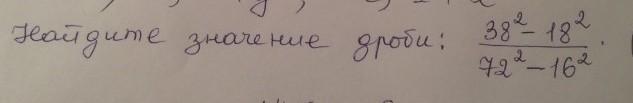 Найдите значение дроби: \frac{38² - 18²}{72² - 16²}.